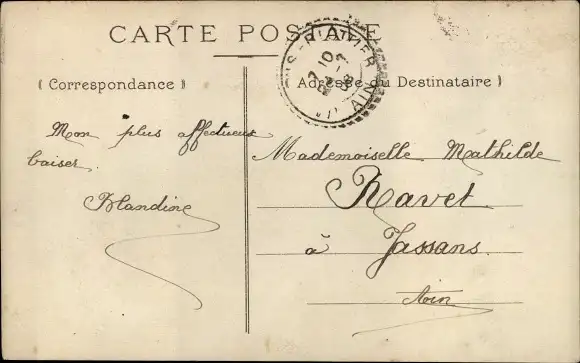 CARTE POSTALE
( Correspondance )
Adresse du Destinataire )
10
AIN
Mon plus affectueux
baiser.
Blandine
Mademoiselle Mathilde
Ravet
à Jassans.
Ain